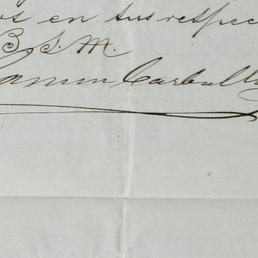 os en sus respec
B. S. M.
Ramon Carballo